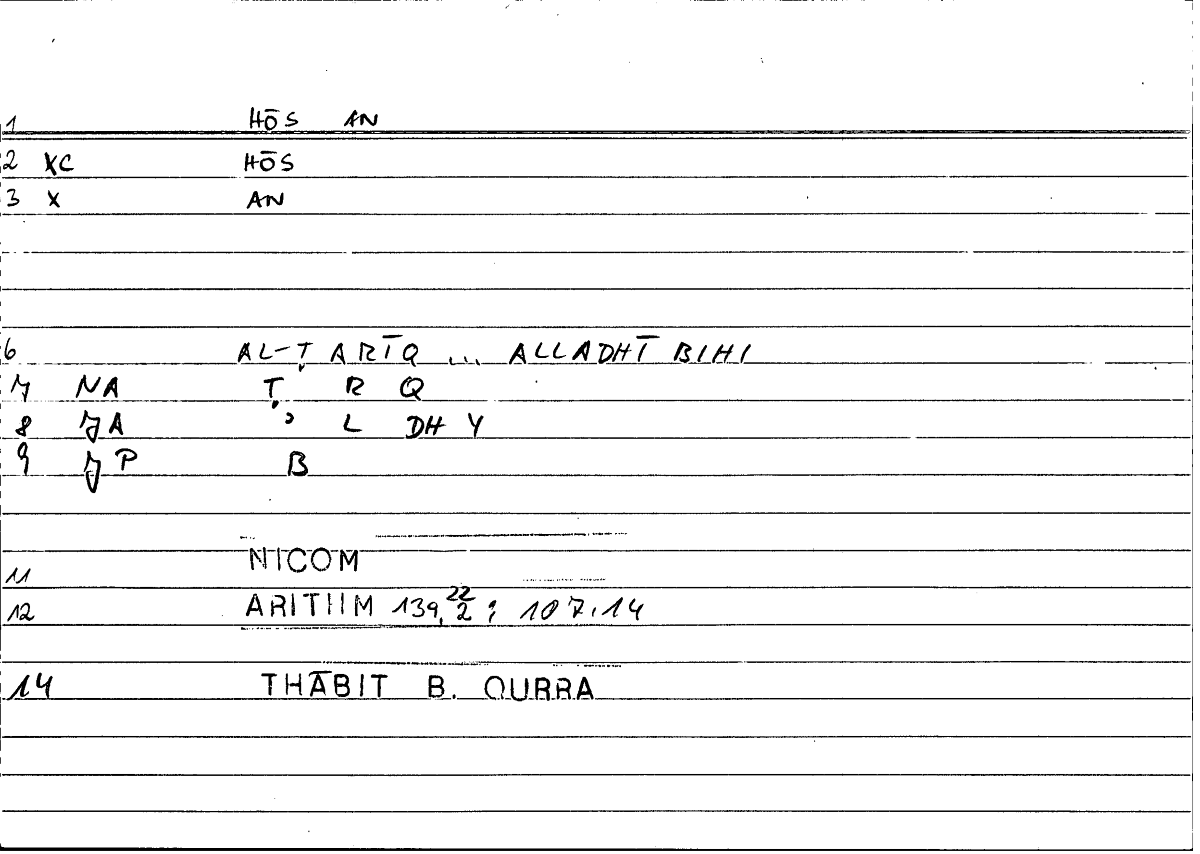 1 HŌS AN
2 XC HŌS
3 X AN
6 AL-ṬARĪQ ... ALLADHĪ BIHI
7 NA Ṭ R Q
8 JA ʾ L DH Y
9 JP B
11 NICOM
12 ARITHM 139,22 ; 107.14
14 THĀBIT B. QURRA